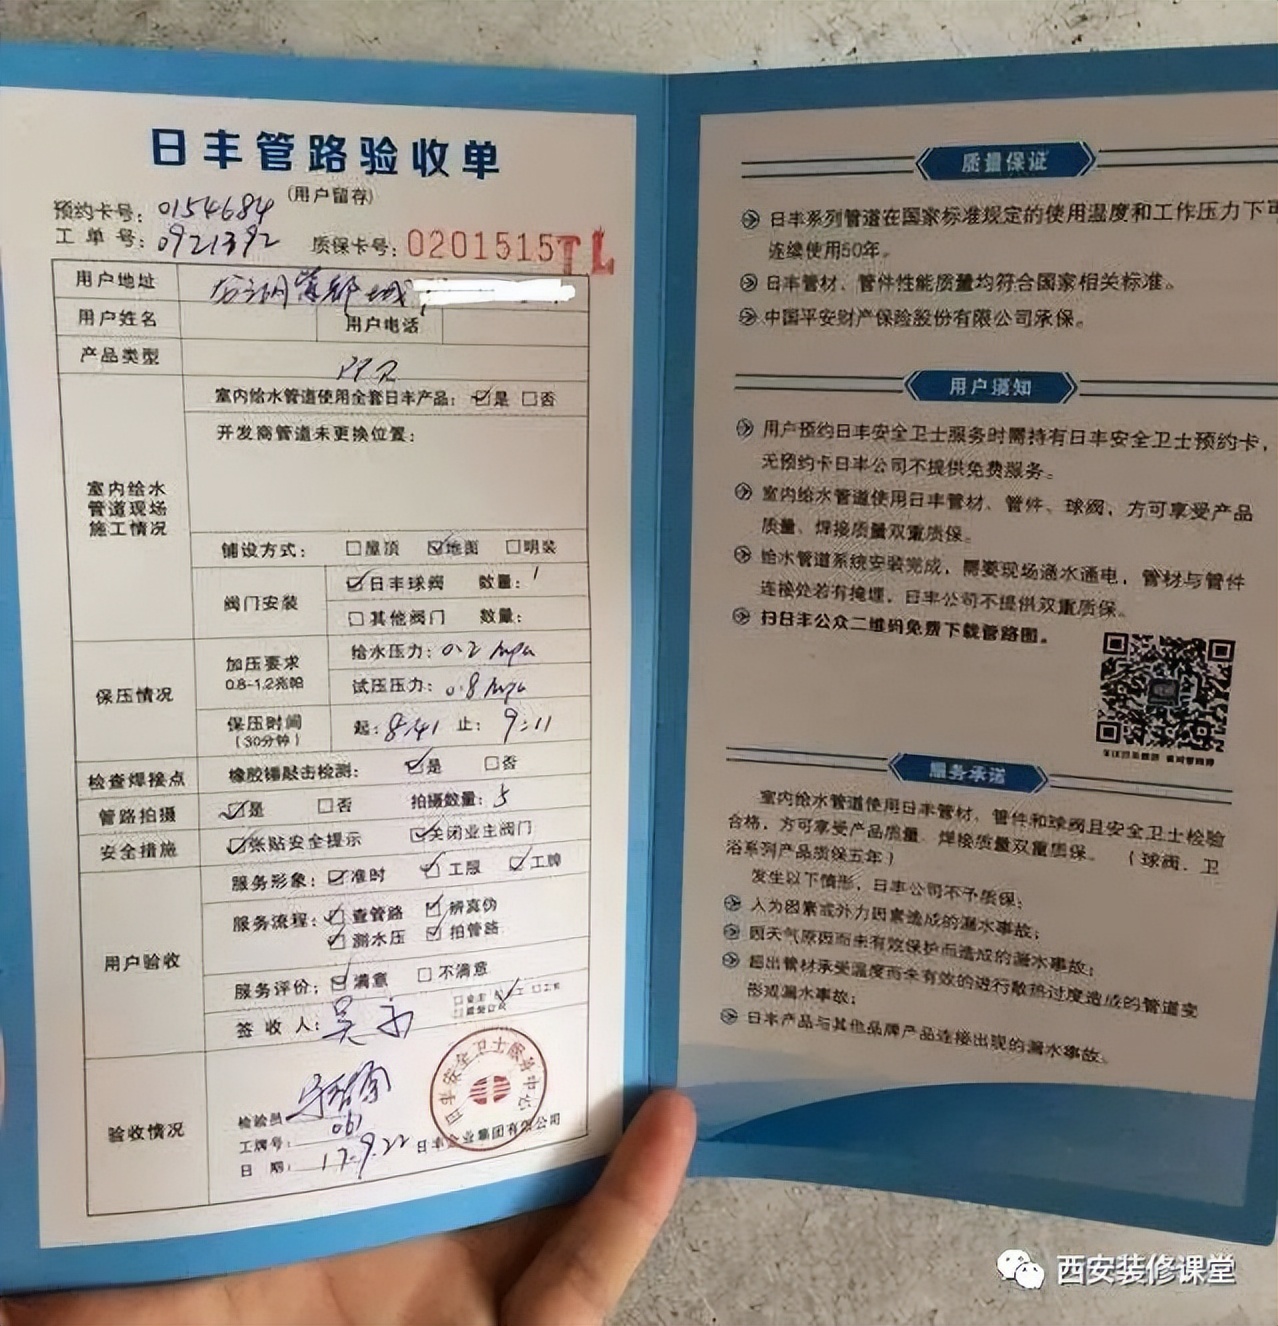 日丰管路验收单
(用户留存)
预约卡号: 0154684
工单号: 0921392 质保卡号: 0201515TL
用户地址
用户姓名 用户电话
产品类型 PPR
室内给水管道使用全套日丰产品: ☑是 □否
开发商管道未更换位置:
室内给水
管道现场
施工情况
铺设方式: □屋顶 ☑地面 □明装
阀门安装 ☑日丰球阀 数量: 1
□其他阀门 数量:
保压情况 加压要求 0.8-1.2兆帕 给水压力: 0.2 Mpa
试压压力: 0.8 Mpa
保压时间 (30分钟) 起: 8:41 止: 9:11
检查焊接点 橡胶锤敲击检测: ☑是 □否
管路拍摄 ☑是 □否 拍摄数量: 5
安全措施 ☑张贴安全提示 ☑关闭业主阀门
用户验收 服务形象: ☑准时 ☑工服 ☑工牌
服务流程: ☑查管路 ☑辨真伪
☑测水压 ☑拍管路
服务评价: ☑满意 □不满意
签收人:
验收情况 检验员
工牌号: 061
日期: 17.9.22
日丰安全卫士服务中心
质量保证
日丰系列管道在国家标准规定的使用温度和工作压力下可
连续使用50年。
日丰管材、管件性能质量均符合国家相关标准。
中国平安财产保险股份有限公司承保。
用户须知
用户预约日丰安全卫士服务时需持有日丰安全卫士预约卡,
无预约卡日丰公司不提供免费服务。
室内给水管道使用日丰管材、管件、球阀,方可享受产品
质量、焊接质量双重质保。
给水管道系统安装完成,需要现场通水通电,管材与管件
连接处若有掩埋,日丰公司不提供双重质保。
扫日丰公众二维码免费下载管路图。
服务承诺
室内给水管道使用日丰管材、管件和球阀且安全卫士检验
合格,方可享受产品质量、焊接质量双重质保。(球阀、卫
浴系列产品质保五年)
发生以下情形,日丰公司不予质保:
人为因素或外力因素造成的漏水事故;
因天气原因而未有效保护而造成的漏水事故;
超出管材承受温度而未有效的进行散热过度造成的管道变
形或漏水事故;
日丰产品与其他品牌产品连接出现的漏水事故。
西安装修课堂